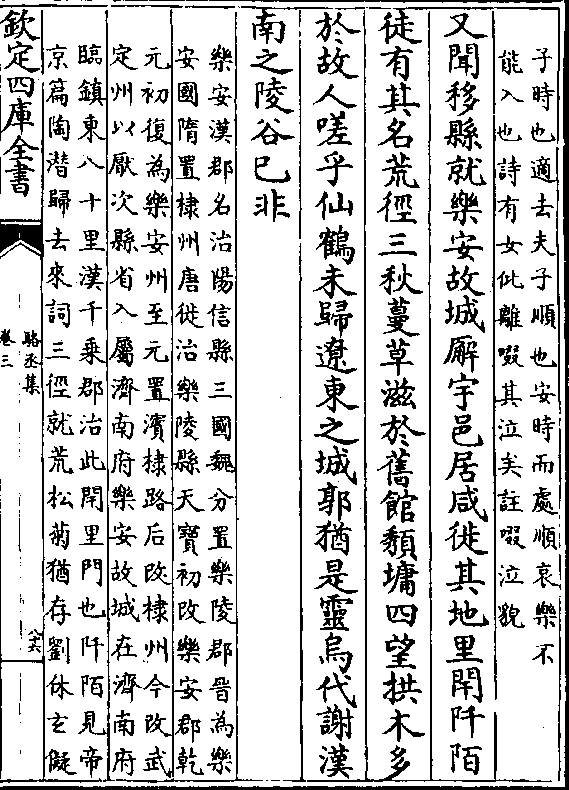 子時也適去夫子順也安時而處順哀樂不
能入也詩有女仳離啜其泣矣註啜泣貌
又聞移縣就樂安故城廨宇邑居咸徙其地里閈阡陌
徒有其名荒徑三秋蔓草滋於舊館頽墉四望拱木多
於故人嗟乎仙鶴未歸遼東之城郭猶是靈烏代謝漢
南之陵谷已非
樂安漢郡名治陽信縣三國魏分置樂陵郡晉為樂
安國隋置棣州唐徙治樂陵縣天寶初改樂安郡乾
元初復為樂安州至元置濱棣路后改棣州今改武
定州以厭次縣省入屬濟南府樂安故城在濟南府
臨鎮東八十里漢千乗郡治此閈里門也阡陌見帝
京篇陶潜歸去來詞三徑就荒松菊猶存劉休玄擬
欽定四庫全書
駱丞集
卷三
六